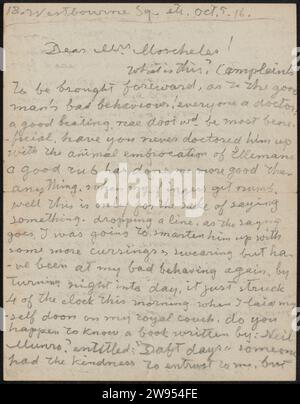 13. Westbourne Sq. Oct. 5. 16.
Dear Mrs Moscheles!
What is this? Complaints
to be brought foreward, as to the good
man's bad behaveiour, everyone a doctor
a good beating, nae doot wd be most bene-
ficial, have you never doctored him up
with the animal embrocation of Elleman's
a good rub has done me more good than
anything, when my fingers get numb,
well this is only for the sake of saying
something. dropping a line, as the saying
goes, I was going to smarten him up with
some more cursings & swearing but ha-
ve been at my bad behaving again, by
turning night into day, it just struck
4 of the clock this morning when I laid my
self doon on my royal couch. do you
happen to know a book written by: Neil
Munro? entitled: "Daft days" someone
had the kindness to entrust to me, but
alamy
Image ID: 2W954FE
www.alamy.com